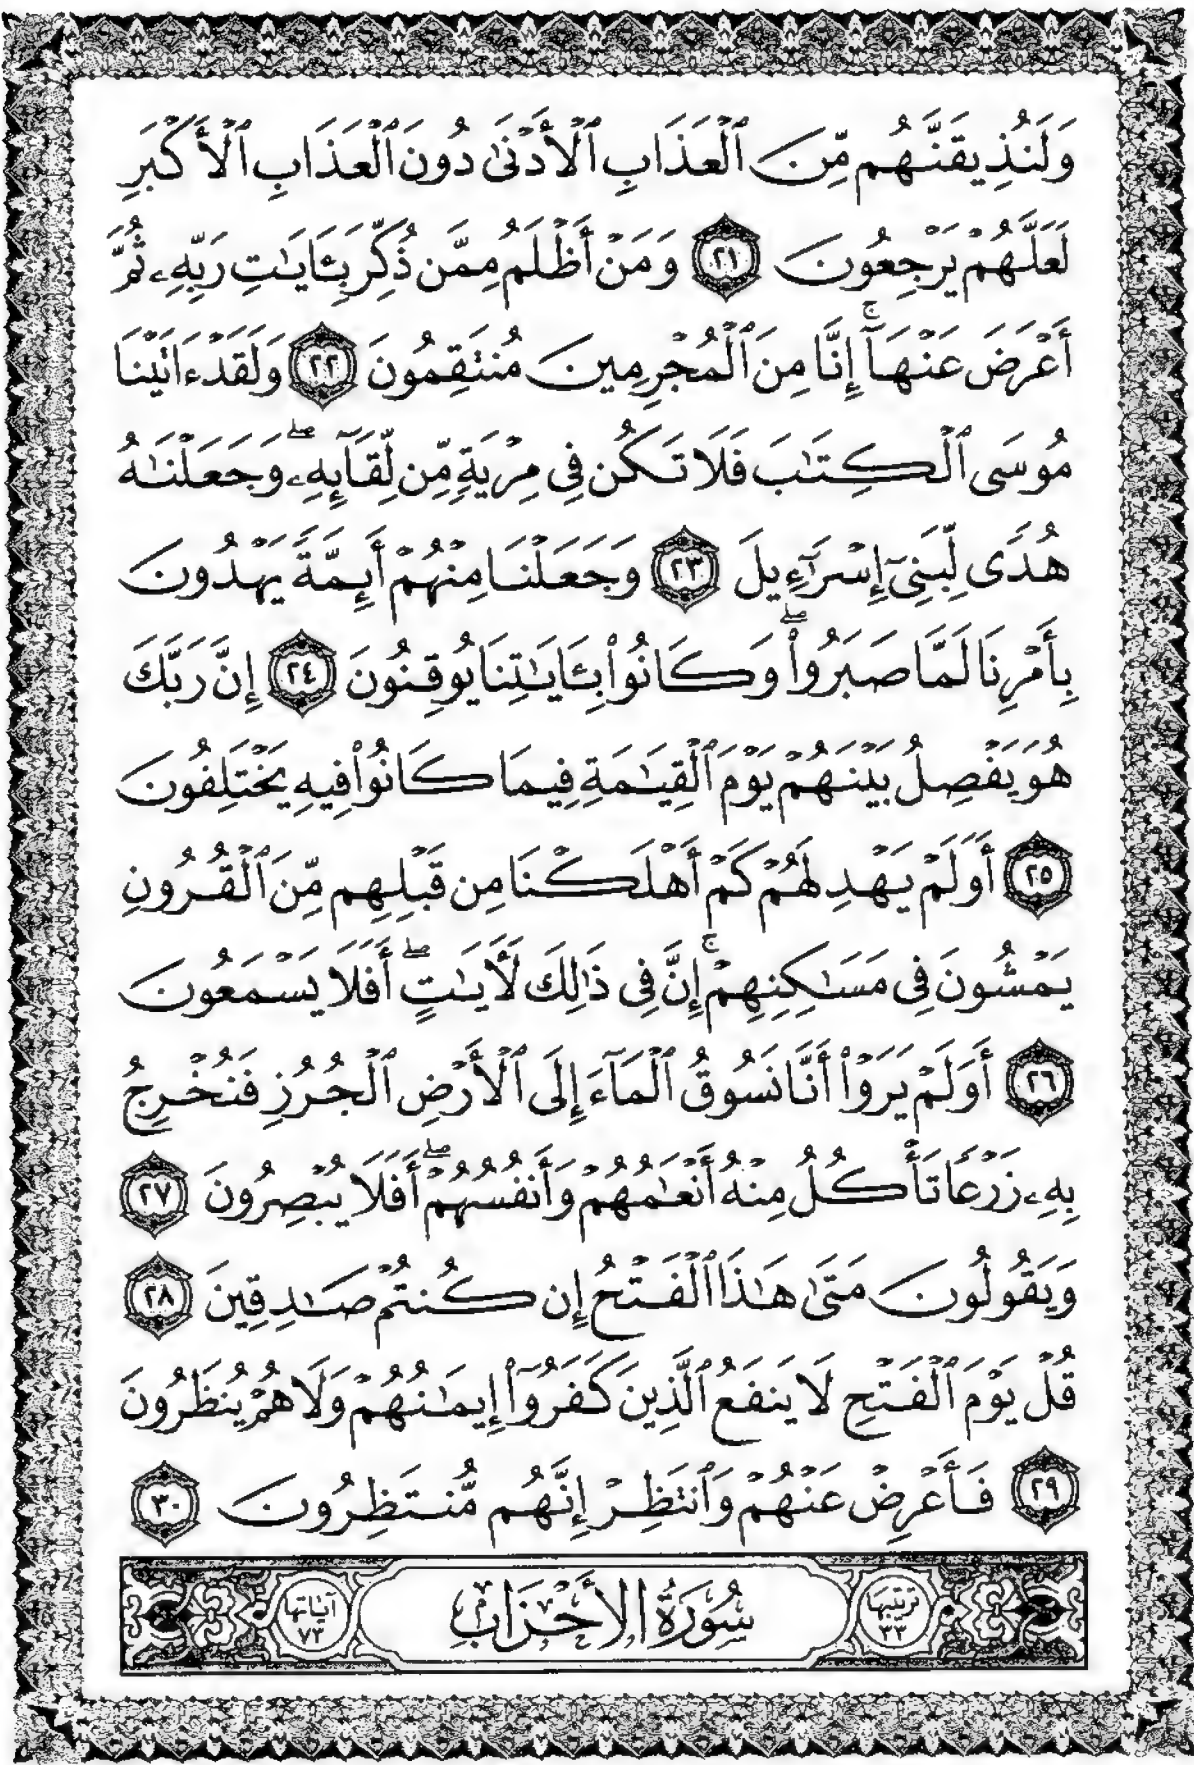 وَلَنُذِيقَنَّهُم مِّنَ ٱلْعَذَابِ ٱلْأَدْنَىٰ دُونَ ٱلْعَذَابِ ٱلْأَكْبَرِ
لَعَلَّهُمْ يَرْجِعُونَ ٢١ وَمَنْ أَظْلَمُ مِمَّن ذُكِّرَ بِـَٔايَٰتِ رَبِّهِۦ ثُمَّ
أَعْرَضَ عَنْهَآ ۚ إِنَّا مِنَ ٱلْمُجْرِمِينَ مُنتَقِمُونَ ٢٢ وَلَقَدْ ءَاتَيْنَا
مُوسَى ٱلْكِتَٰبَ فَلَا تَكُن فِى مِرْيَةٍ مِّن لِّقَآئِهِۦ ۖ وَجَعَلْنَٰهُ
هُدًى لِّبَنِىٓ إِسْرَٰٓءِيلَ ٢٣ وَجَعَلْنَا مِنْهُمْ أَئِمَّةً يَهْدُونَ
بِأَمْرِنَا لَمَّا صَبَرُوا۟ ۖ وَكَانُوا۟ بِـَٔايَٰتِنَا يُوقِنُونَ ٢٤ إِنَّ رَبَّكَ
هُوَ يَفْصِلُ بَيْنَهُمْ يَوْمَ ٱلْقِيَٰمَةِ فِيمَا كَانُوا۟ فِيهِ يَخْتَلِفُونَ
٢٥ أَوَلَمْ يَهْدِ لَهُمْ كَمْ أَهْلَكْنَا مِن قَبْلِهِم مِّنَ ٱلْقُرُونِ
يَمْشُونَ فِى مَسَٰكِنِهِمْ ۚ إِنَّ فِى ذَٰلِكَ لَـَٔايَٰتٍ ۖ أَفَلَا يَسْمَعُونَ
٢٦ أَوَلَمْ يَرَوْا۟ أَنَّا نَسُوقُ ٱلْمَآءَ إِلَى ٱلْأَرْضِ ٱلْجُرُزِ فَنُخْرِجُ
بِهِۦ زَرْعًا تَأْكُلُ مِنْهُ أَنْعَٰمُهُمْ وَأَنفُسُهُمْ ۖ أَفَلَا يُبْصِرُونَ ٢٧
وَيَقُولُونَ مَتَىٰ هَٰذَا ٱلْفَتْحُ إِن كُنتُمْ صَٰدِقِينَ ٢٨
قُلْ يَوْمَ ٱلْفَتْحِ لَا يَنفَعُ ٱلَّذِينَ كَفَرُوٓا۟ إِيمَٰنُهُمْ وَلَا هُمْ يُنظَرُونَ
٢٩ فَأَعْرِضْ عَنْهُمْ وَٱنتَظِرْ إِنَّهُم مُّنتَظِرُونَ ٣٠
ترتيبها ٣٣ سُورَةُ الأَحْزَابِ آياتها ٧٣